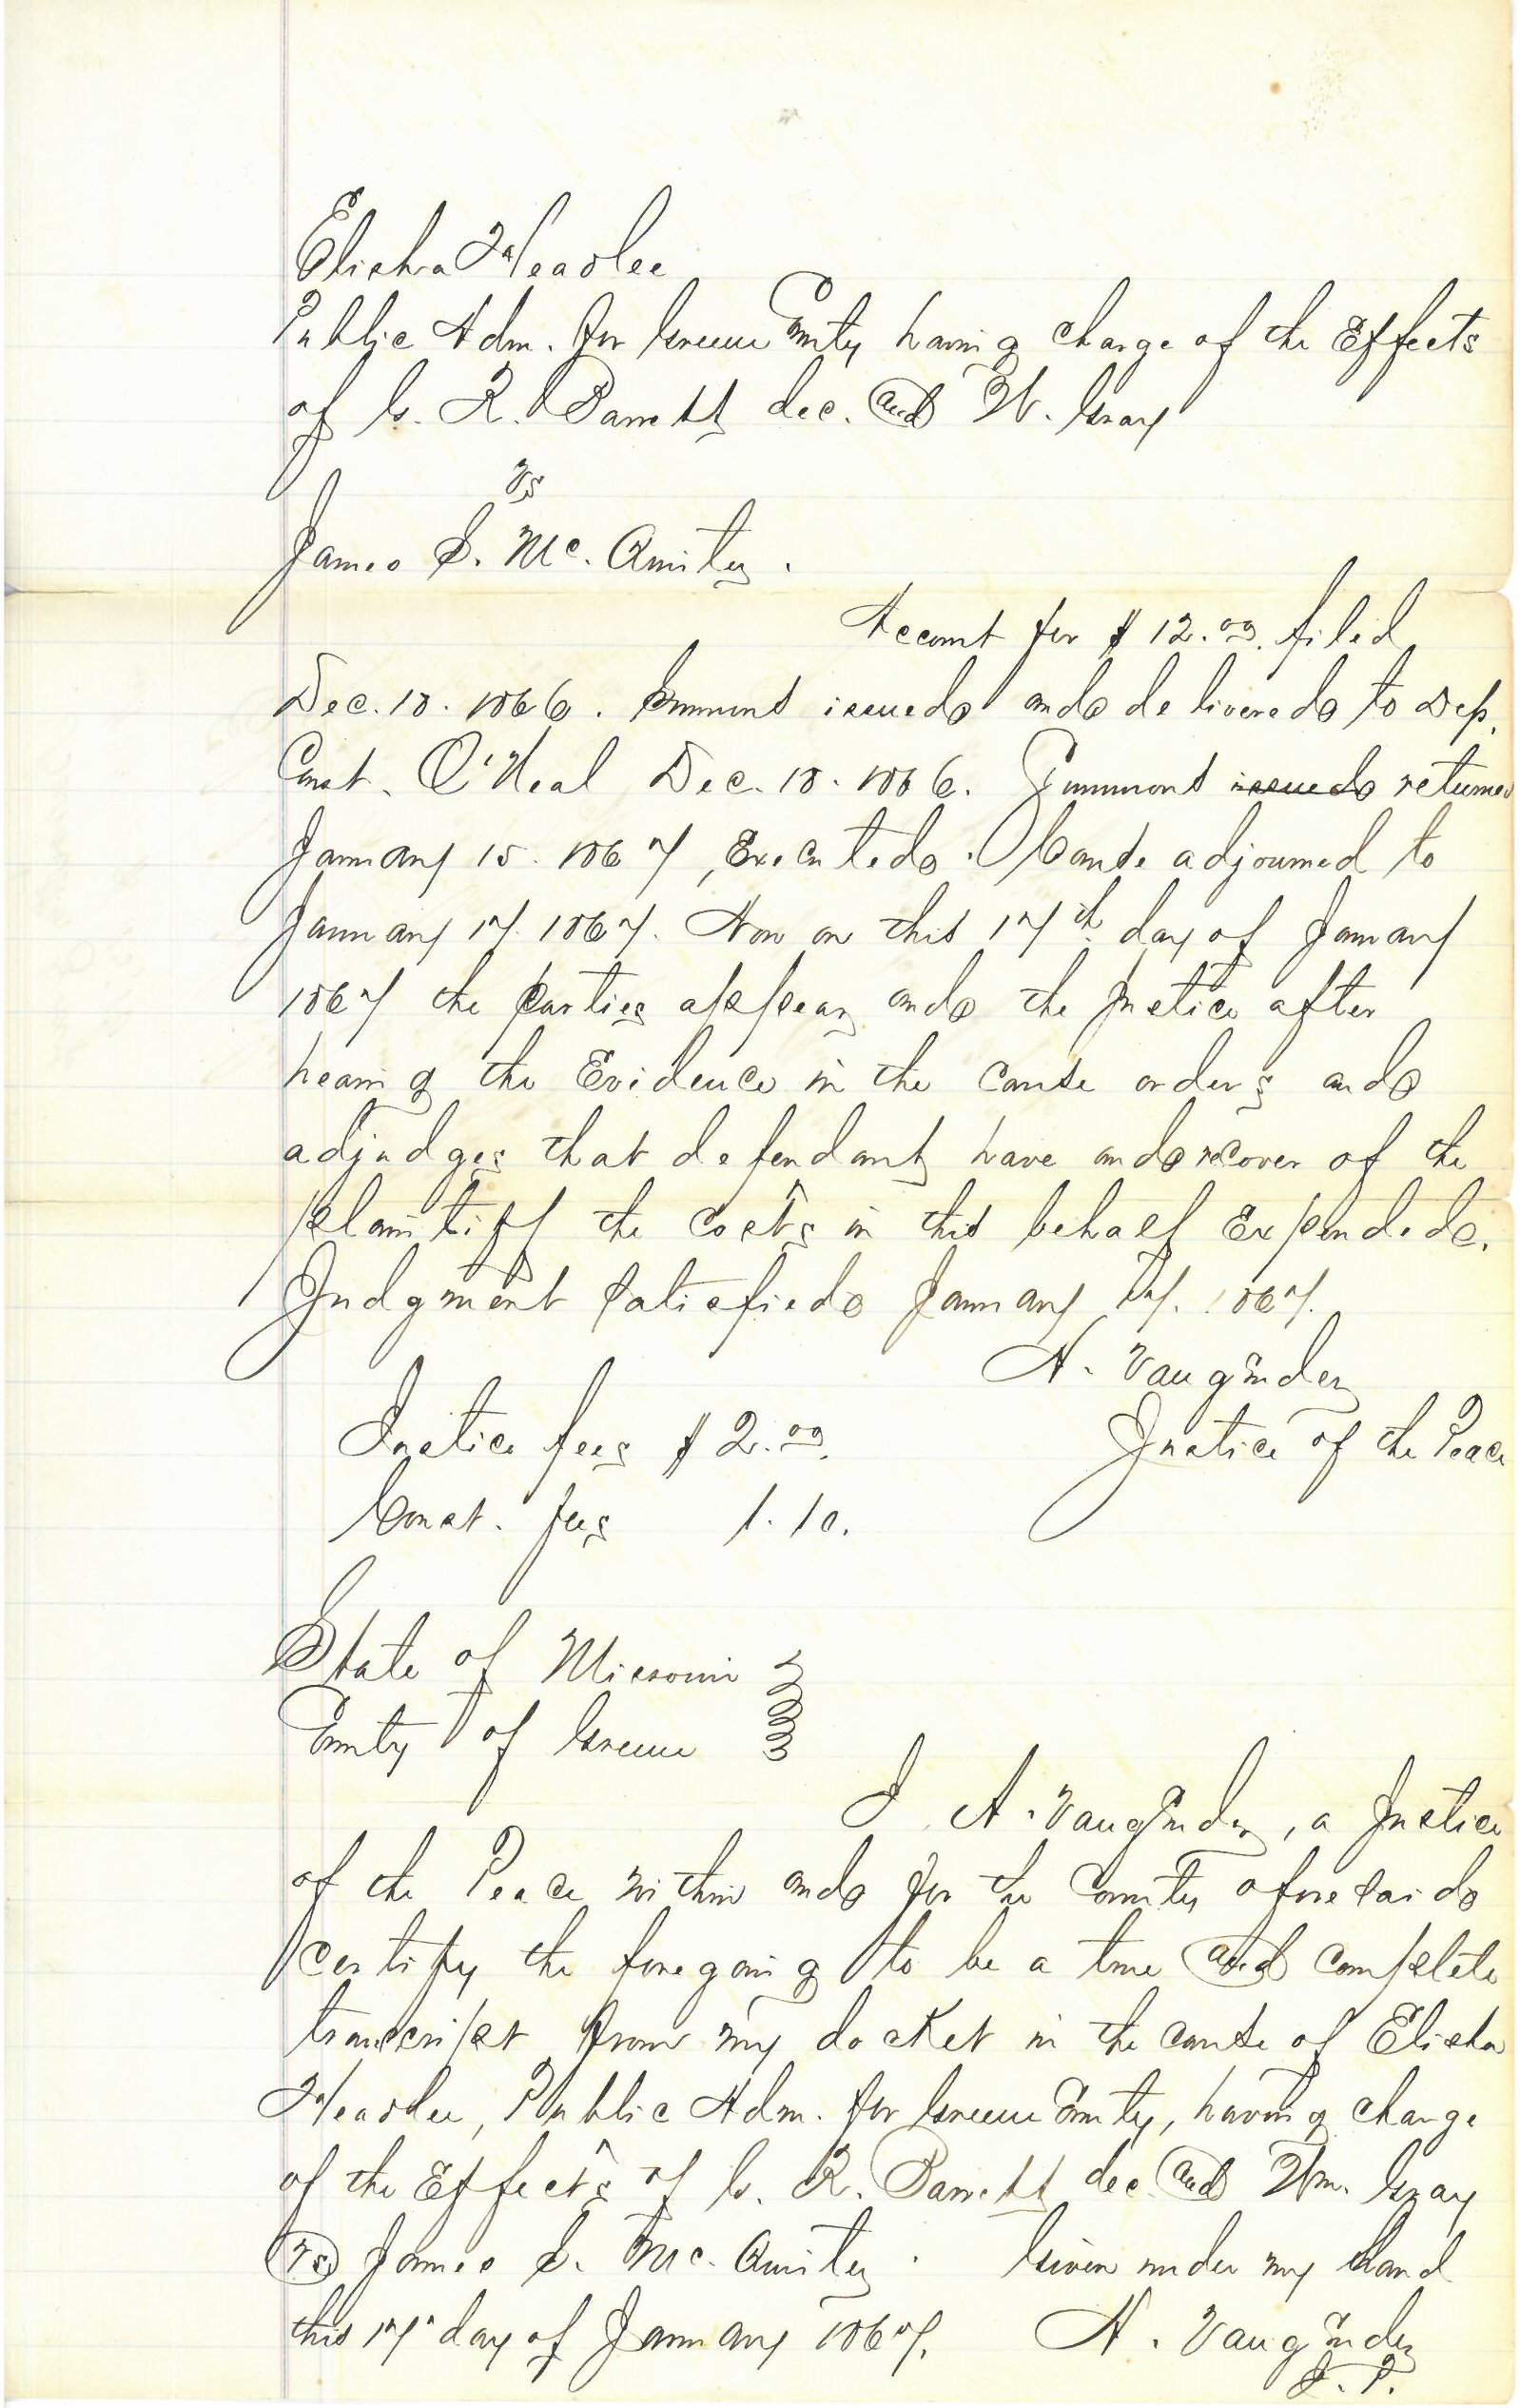 Elisha Headlee
Public Adm. for Greene County having charge of the Effects
of C. R. Barrett dec. and W. Gray
vs
James S. Mc. Quity.
Account for $12.00. filed
Dec. 18. 1866. Summons issued and delivered to Dep.
Const. O'Neal Dec. 18. 1866. Summons issued returned
January 15. 1867, Executed. Cause adjourned to
January 17. 1867. Now on this 17th day of January
1867 the parties appear and the Justice after
hearing the Evidence in the cause orders and
adjudges that defendant have and recover of the
plaintiff the costs in this behalf Expended.
Judgment satisfied January 17. 1867.
A.
Justice fees $2.00.
Justice of the Peace
Const. fees 1.10.
State of Missouri
County of Greene
I A. , a Justice
of the Peace within and for the County aforesaid
certify the foregoing to be a true and complete
transcript from my docket in the cause of Elisha
Headlee, Public Adm. for Greene County, having charge
of the Effects of C. R. Barrett dec and Wm. Gray
vs James S. Mc. Quity. Given under my hand
this 17th day of January 1867. A.
J. P.